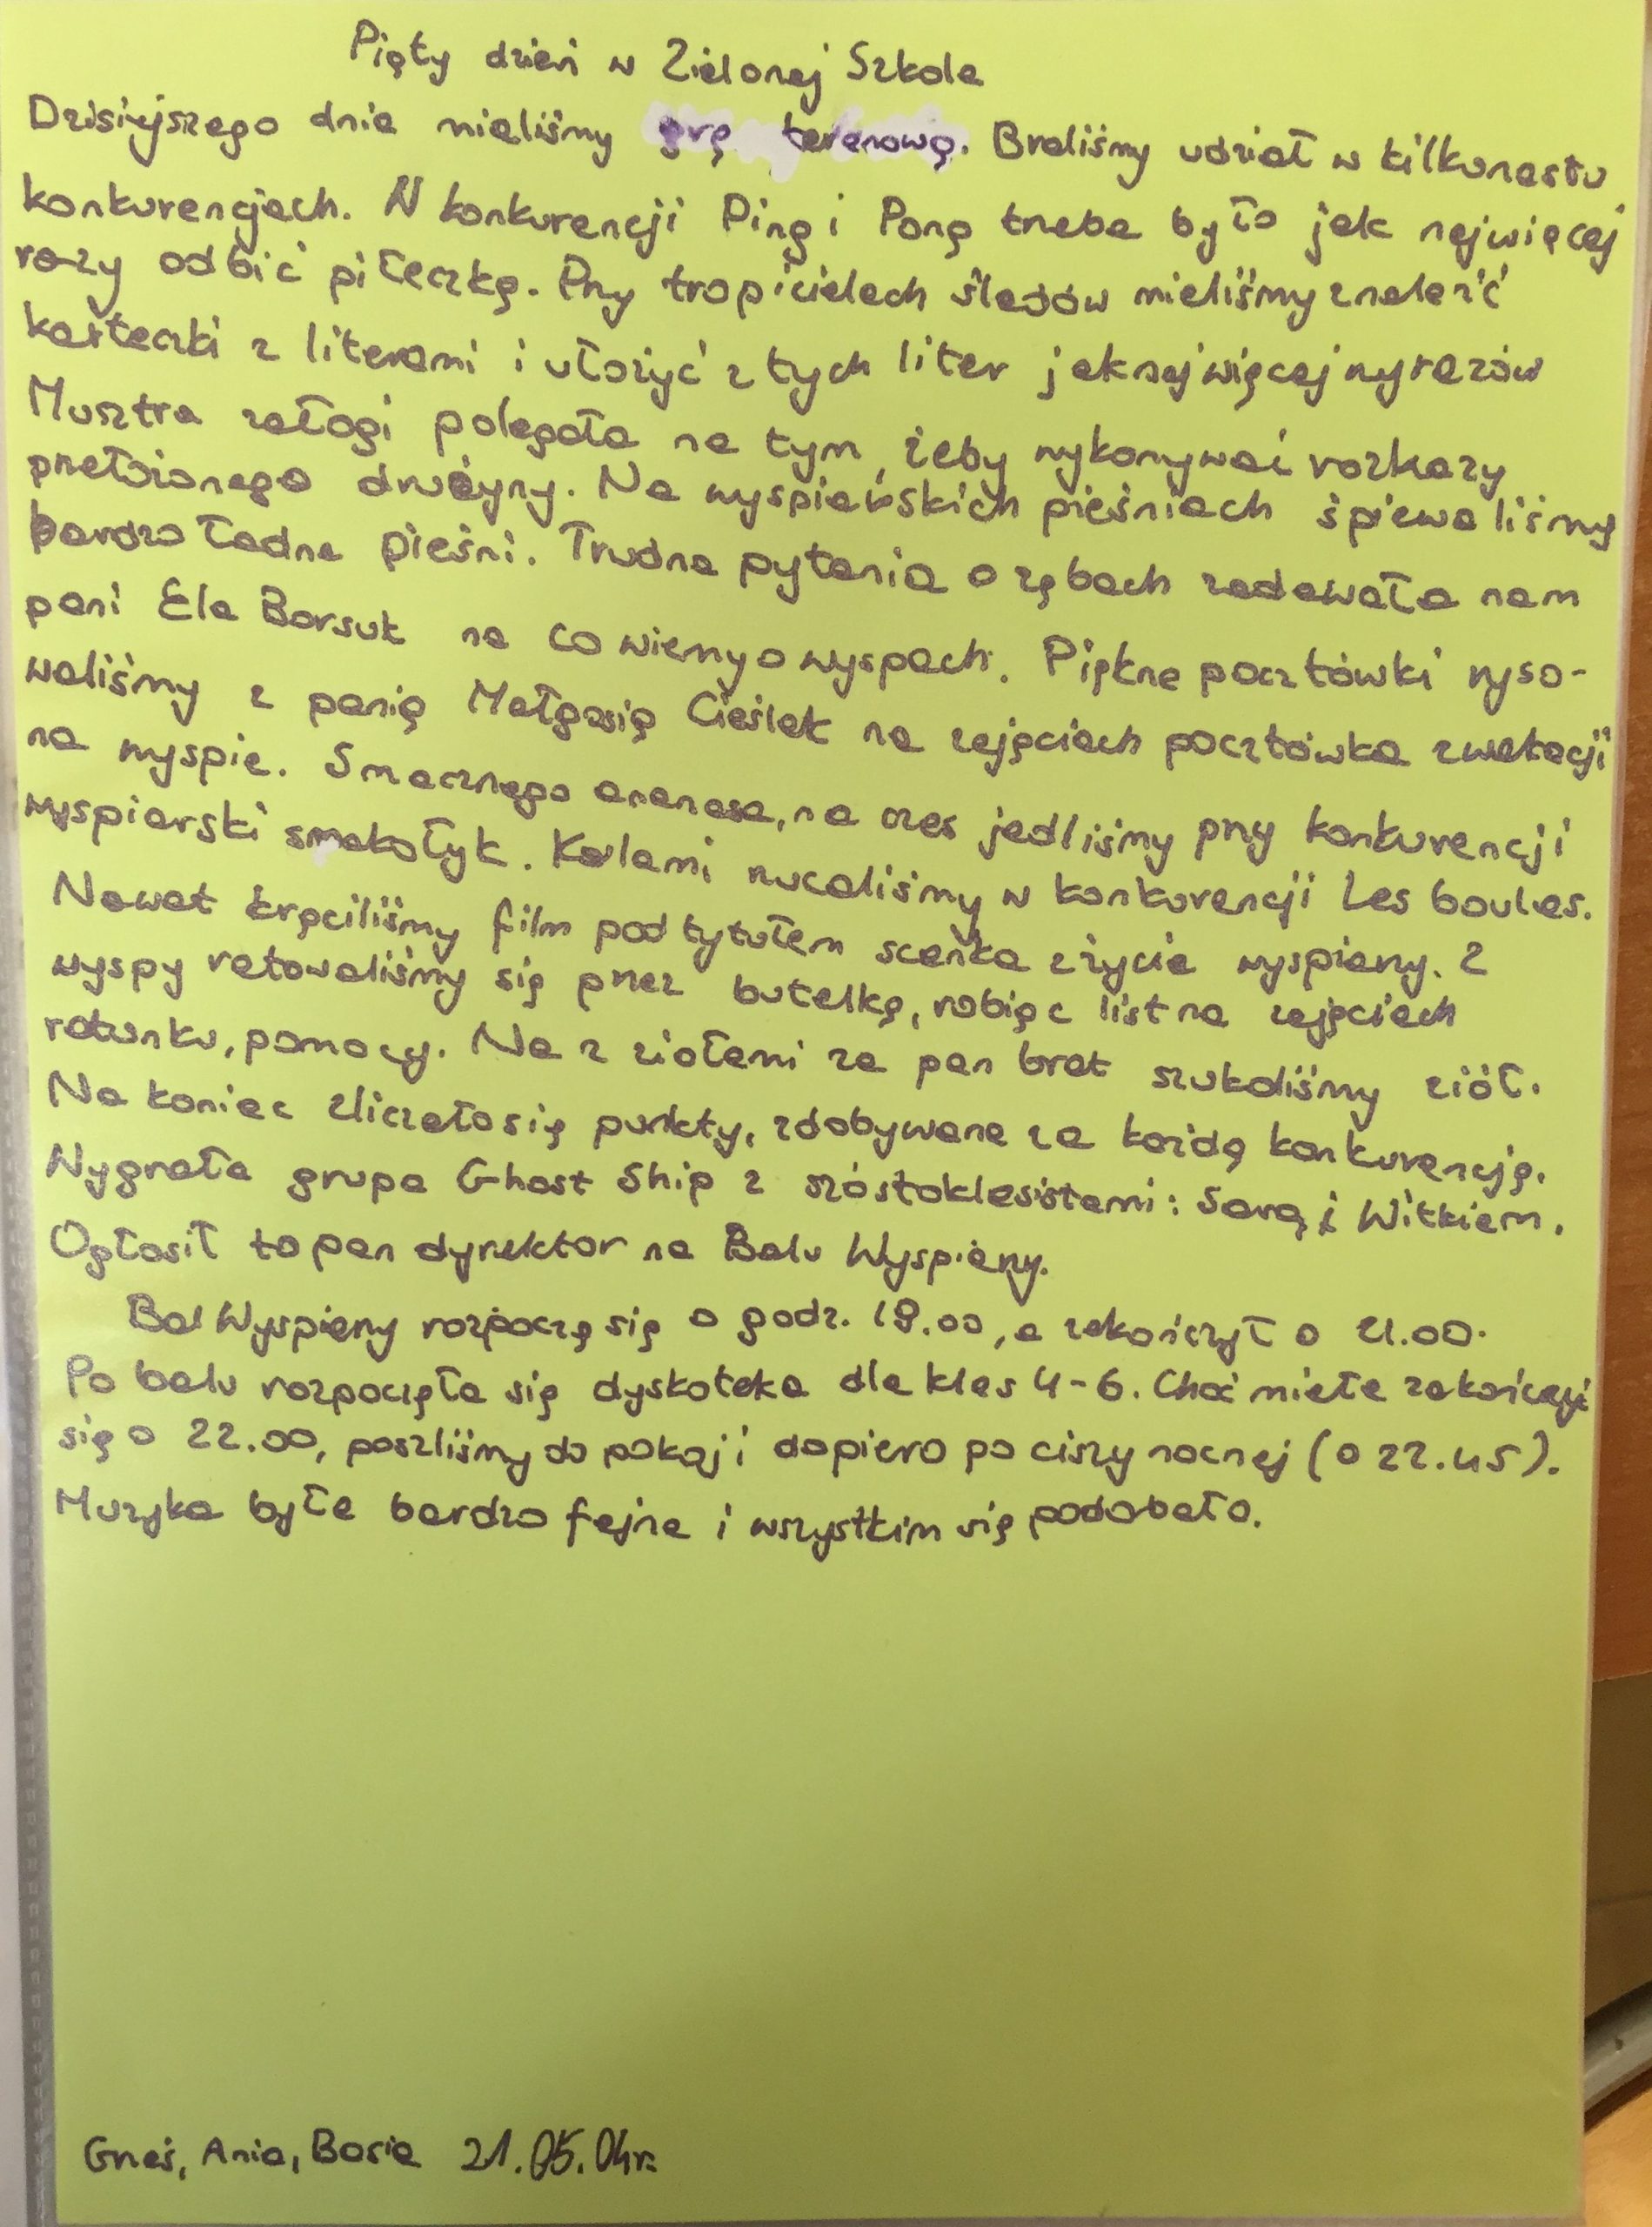 Piąty dzień w Zielonej Szkole
Dzisiejszego dnia mieliśmy grę terenową. Braliśmy udział w kilkunastu
konkurencjach. W konkurencji Ping i Pong trzeba było jak najwięcej
razy odbić piłeczkę. Przy tropicielach śladów mieliśmy znaleźć
karteczki z literami i ułożyć z tych liter jak najwięcej wyrazów
Musztra załogi polegała na tym, żeby wykonywać rozkazy
przełożonego drużyny. Na wyspiarskich pieśniach śpiewaliśmy
bardzo ładne pieśni. Trudne pytania o zębach zadawała nam
pani Ela Borsuk na co wiemy o wyspach. Piękne pocztówki ryso-
waliśmy z panią Małgosią Cieślak na zajęciach pocztówka z wakacji
na wyspie. Smacznego ananasa, na czas jedliśmy przy konkurencji
wyspiarski smakołyk. Kulami rzucaliśmy w konkurencji Les boules.
Nawet kręciliśmy film pod tytułem scenka z życia wyspiarzy. Z
wyspy ratowaliśmy się przez butelkę, robiąc list na zajęciach
ratunku, pomocy. Na z ziołami za pan brat szukaliśmy ziół.
Na koniec zliczało się punkty, zdobywane za każdą konkurencję.
Wygrała grupa Ghost Ship z szóstoklasistami: Sarą i Witkiem.
Ogłosił to pan dyrektor na Balu Wyspiarzy.
Bal Wyspiarzy rozpoczą się o godz. 19.00, a zakończył o 21.00.
Po balu rozpoczęła się dyskoteka dla klas 4-6. Choć miała zakończyć
się o 22.00, poszliśmy do pokoji dopiero po ciszy nocnej (o 22.45).
Muzyka była bardzo fajna i wszystkim się podobała.
Grześ, Ania, Basia 21.05.04r.